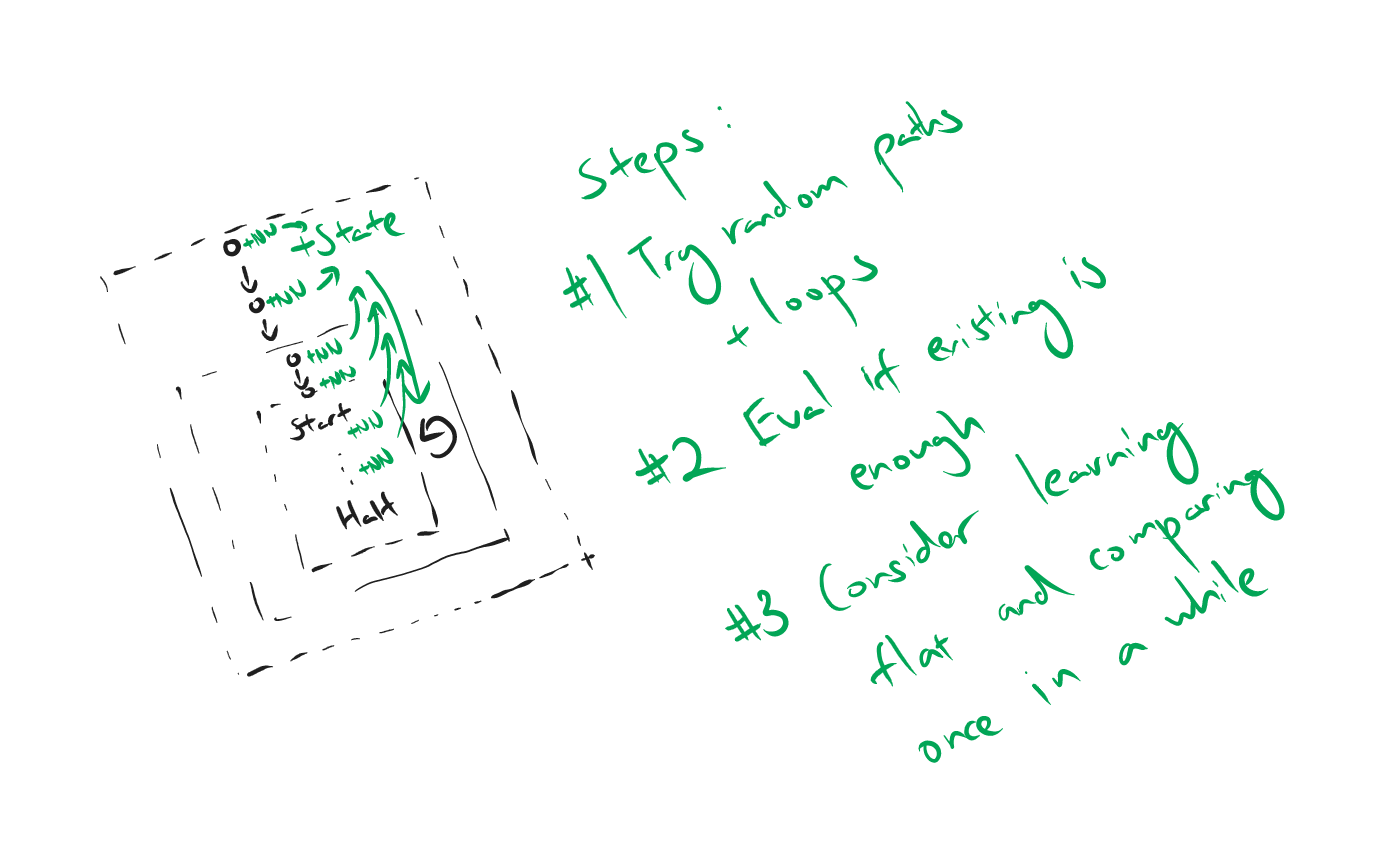 +NN
+State
+NN
+NN
+NN
Start
+NN
+NN
Halt
Steps:
#1 Try random paths
+ loops
#2 Eval if existing is
enough
#3 Consider learning
flat and comparing
once in a while